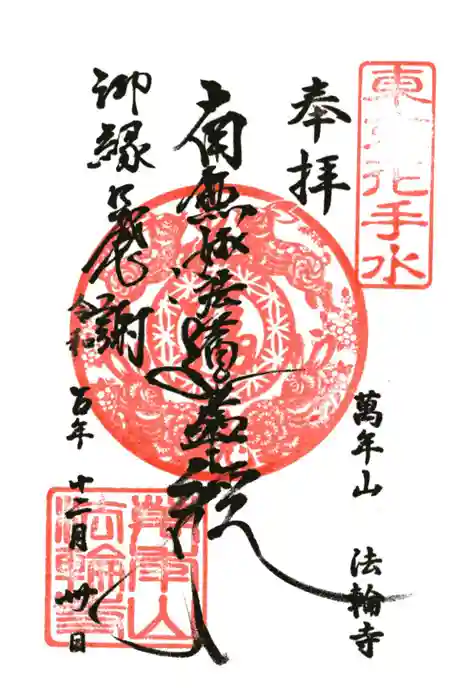 東京花手水
奉拝
萬年山 法輪寺
南無妙法蓮華経
御縁感謝
令和
五年 十二月 卅日
萬年山
法輪寺